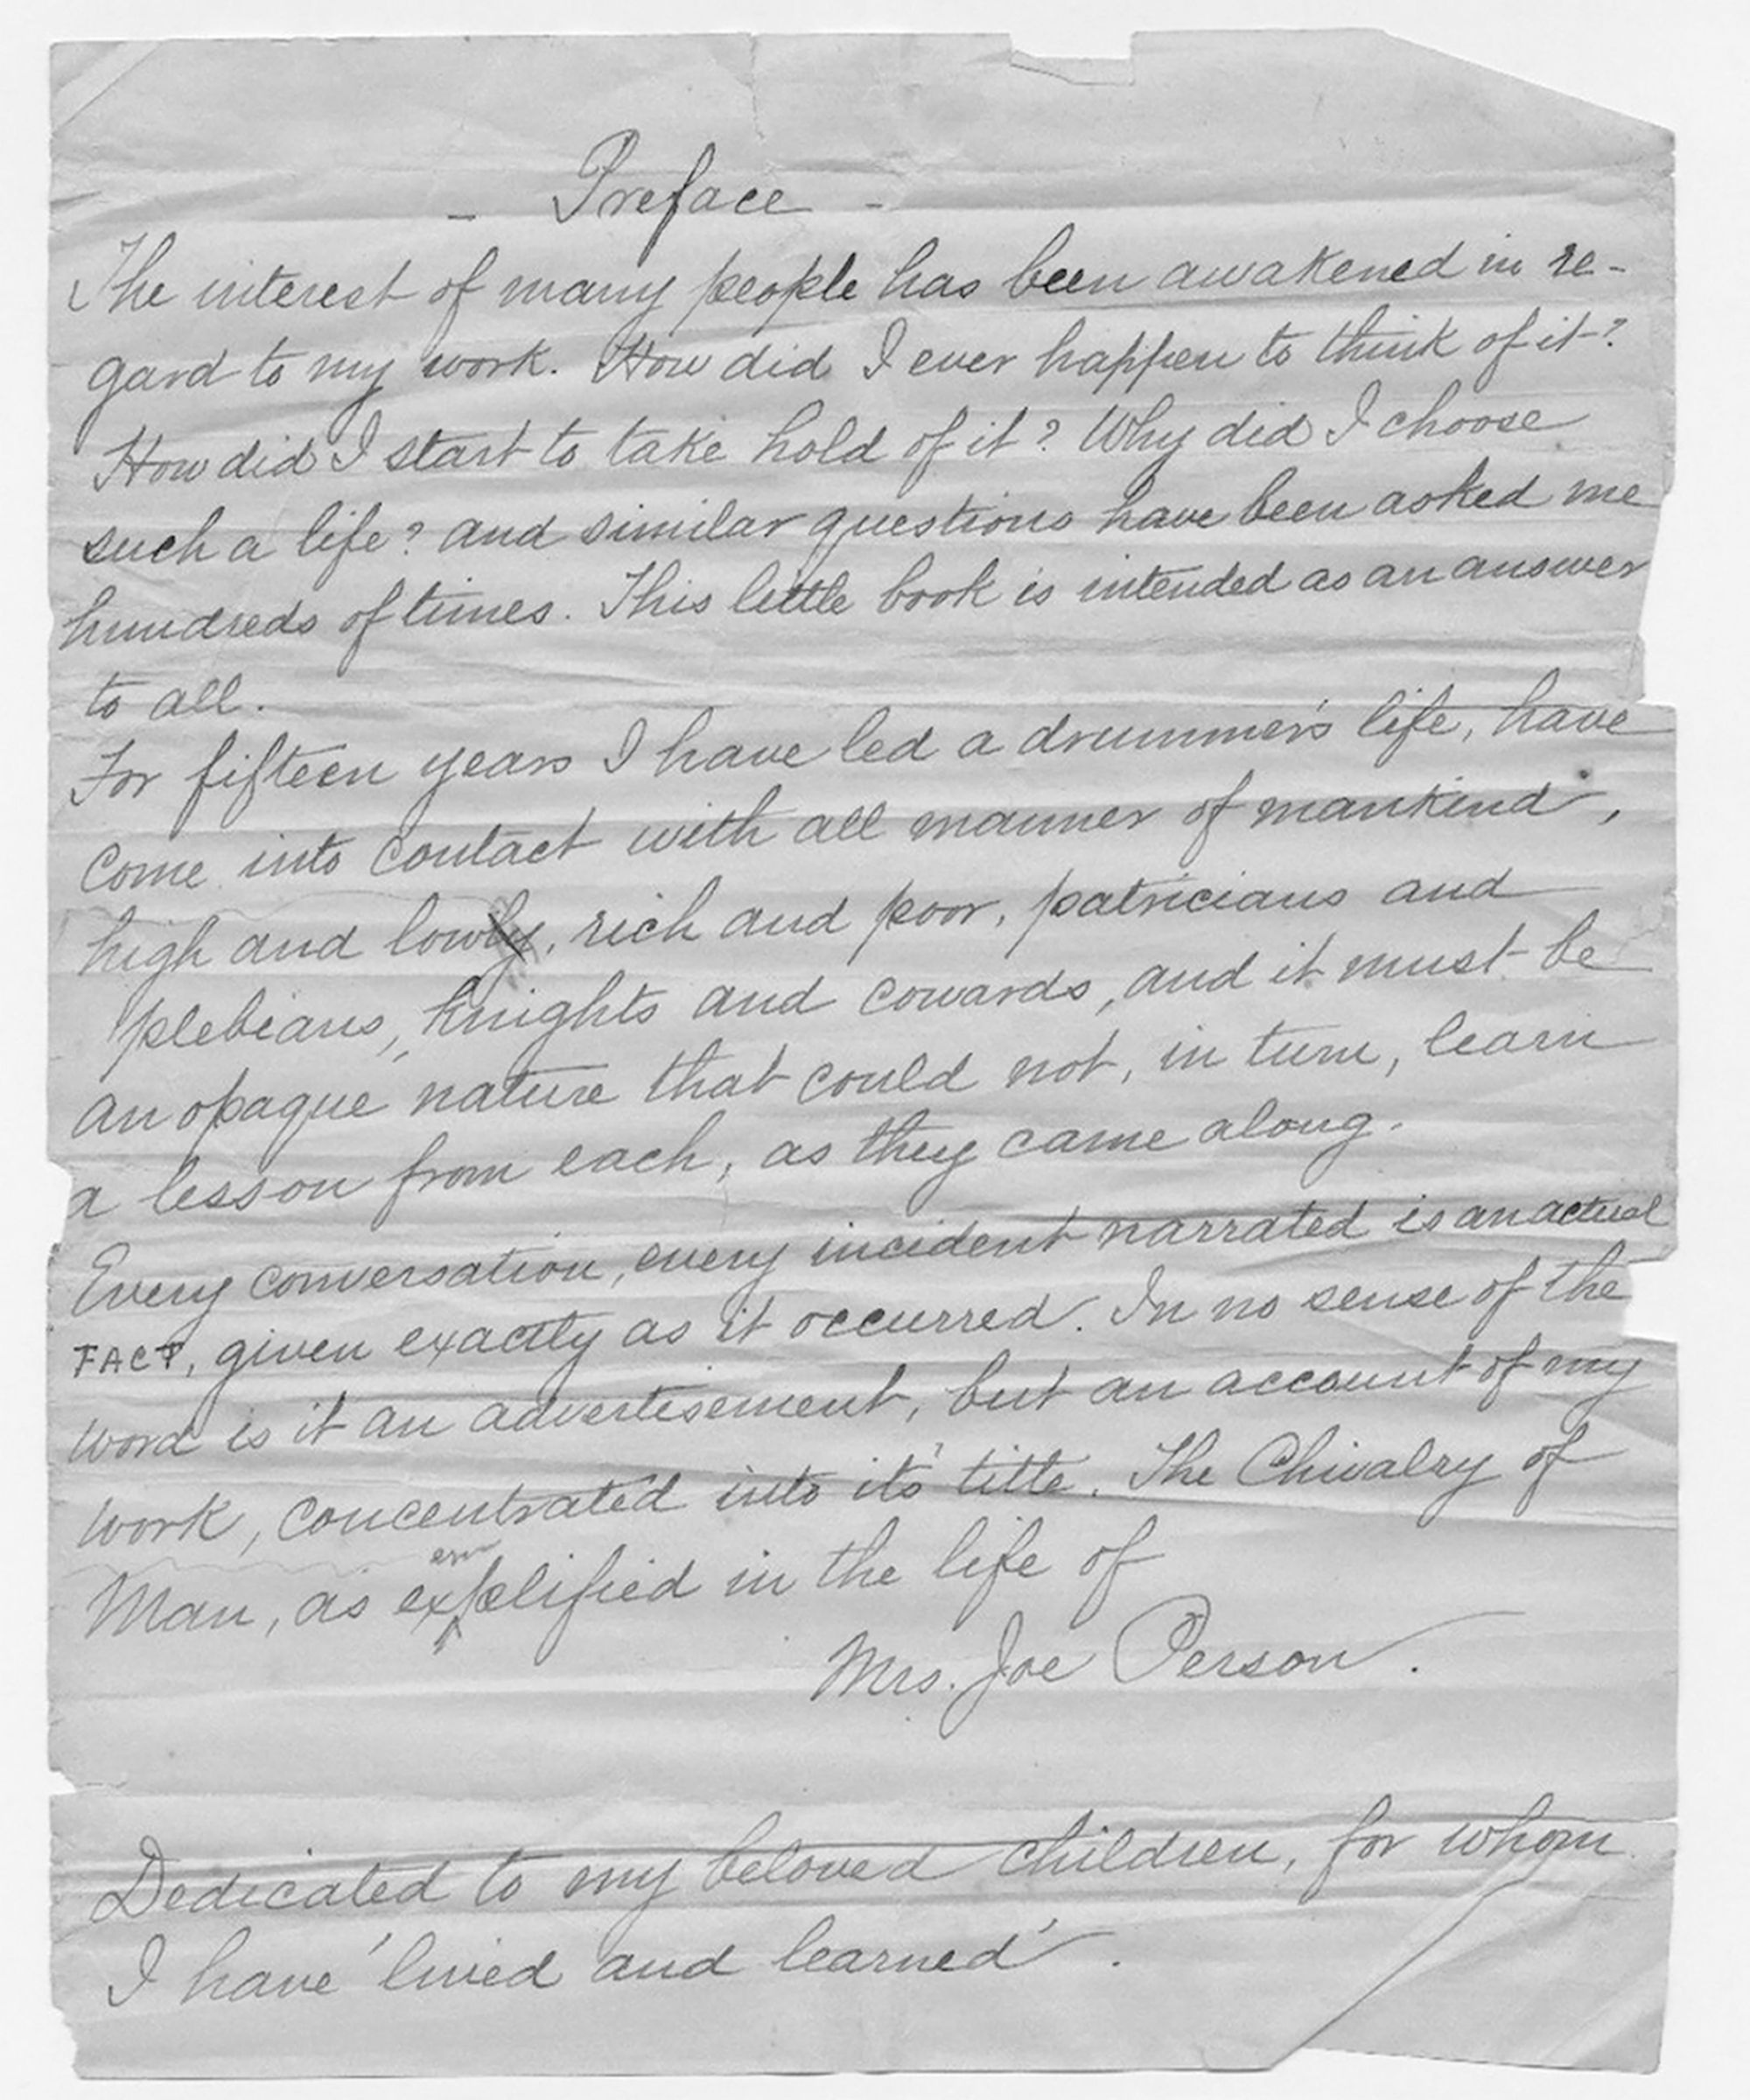 - Preface -
The interest of many people has been awakened in re-
gard to my work. How did I ever happen to think of it?
How did I start to take hold of it? Why did I choose
such a life? and similar questions have been asked me
hundreds of times. This little book is intended as an answer
to all.
For fifteen years I have led a drummer's life, have
come into contact with all manner of mankind,
high and lowly, rich and poor, patricians and
plebians, knights and cowards, and it must be
an opaque nature that could not, in turn, learn
a lesson from each, as they came along.
Every conversation, every incident narrated is an actual
FACT, given exactly as it occurred. In no sense of the
word is it an advertisement, but an account of my
work, concentrated into it's title. The Chivalry of
em
Man, as explified in the life of
Mrs. Joe Person.
Dedicated to my beloved children, for whom
I have 'lived and learned'.